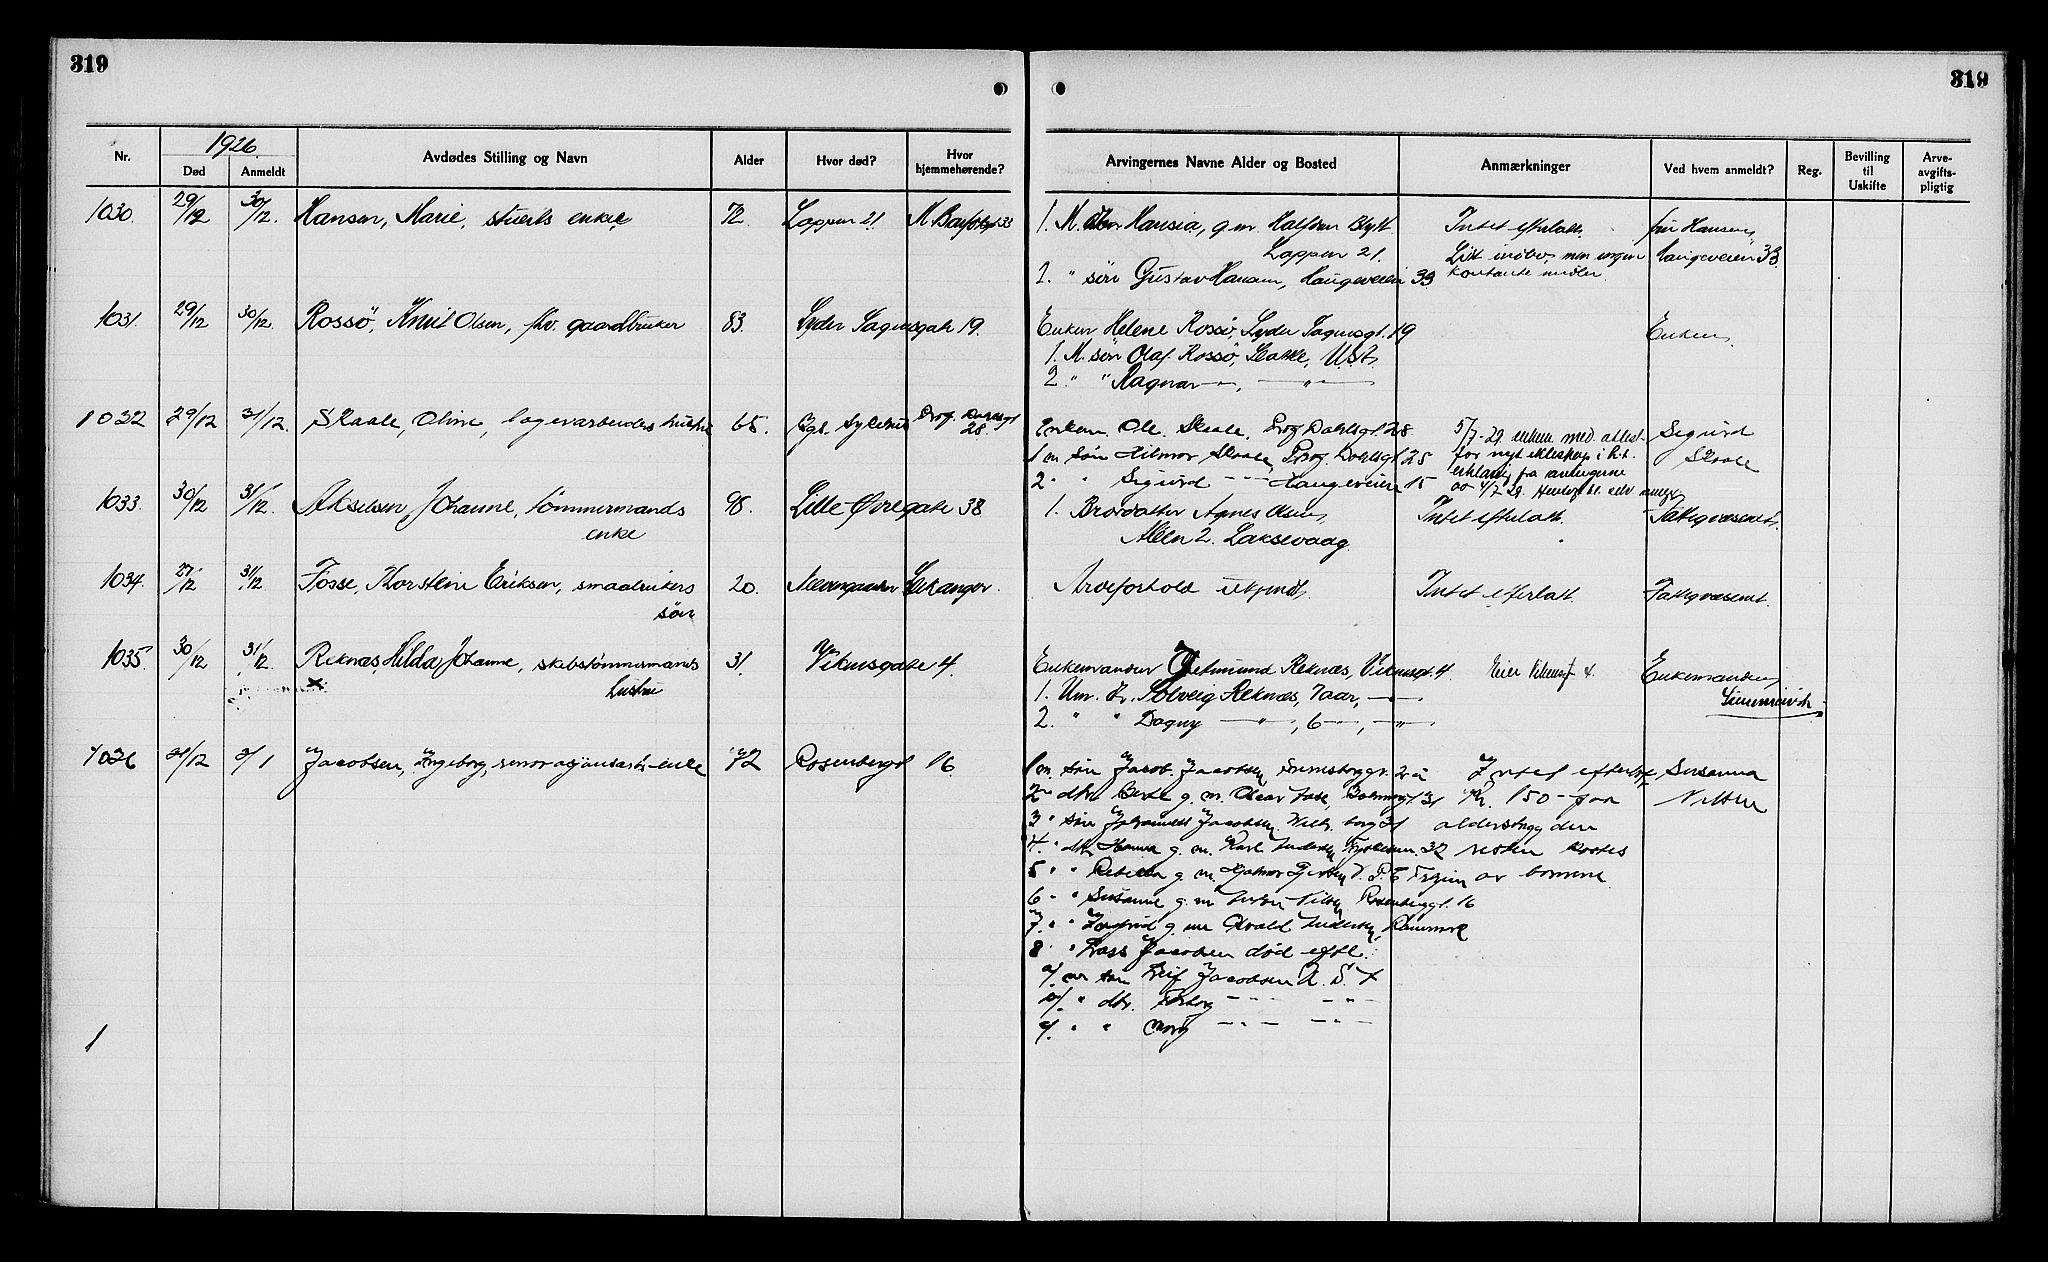 319
319
Nr.
1926.
Død
Anmeldt
Avdødes Stilling og Navn
Alder
Hvor død?
Hvor hjemmehørende?
Arvingernes Navne Alder og Bosted
Anmærkninger
Ved hvem anmeldt?
Reg.
Bevilling til Uskifte
Arve-avgifts-pligtig
1030. 29/12 30/12. Hansen, Marie, stuerts enke, 72. Lappen 21.
1. M. dtr Hansia, g.m. Halfdan Blytt Intet efterlatt. fru Hansen,
Lappen 21. Litt indbo, men ingen Haugeveien 33.
2. " søn Gustav Hansen, Haugeveien 33 kontante midler.
1031. 29/12 30/12. Rossö, Knut Olsen, fhv. gaardbruker 83. Lyder Sagensgate 19.
Enken Helene Rossö, Lyder Sagensgt. 19 Enken.
1. M. søn Olaf Rossö, U.S.A.
2. " " Ragnar — " —
1032 29/12 31/12. Skaale, Oline, lagerarbeiders hustru 65. Hgl. Sykehus Prof. Dahlsgt 28.
Enkem. Ole Skaale, Prof. Dahlsgt. 28 5/7-29 enkem. med attest Sigurd
1 m. søn Hilmar Skaale, Prof. Dahlsgt 28 for nyt ekteskap Skaale
2 " " Sigurd — " — Haugeveien 15
1033. 30/12 31/12. Akselsen Johanne, tømmermands 98. Lille Øvregate 38
enke
1. Brordatter Agnes Olsen, Intet efterlatt. Fattigvæsenet.
Alleen 2. Laksevaag.
1034. 27/12 31/12 Fosse, Torstein Eriksen, smaabrukers 20. Neevengaarden Leikanger.
søn
Arveforhold ukjendt, Intet efterlatt. Fattigvæsenet.
1035. 30/12 31/12. Reknes, Hilda Johanne, skibstømmermands 31. Vikensgate 4.
hustru
Enkemanden Reknes, Vikensgt. 4. Eier Vikensgt 4. Enkemanden,
1. Um. dtr. Solveig Reknes, 7 aar, — " —
2. " " Dagny — " —, 6 —, — " —
1036 31/12 3/1 Jacobsen, Ingeborg, enke 72 Rosenbergt 16
1 m. søn Jacob Jacobsen, 2 a Intet efterlatt Susanna
2 " dtr Berte g. m. Oscar 31 Kr. 150 - paa Nilsen
3 " søn Jacobsen, 31 alderstrygden
4. " dtr Hanna g. m. Karl Andersen, 32 resten kostes
5 " " Rebekka g. m. Hjalmar av barnene.
6 " " Susanne g. m. Nilsen Rosenberggt. 16
7. " " g. m. Andersen, Danmark
8 " Lars Jacobsen død eftl.:
a/. m søn Leif Jacobsen U. S. A
b/. " dtr. — " — — " —
c/. " " Mary — " — — " —
1